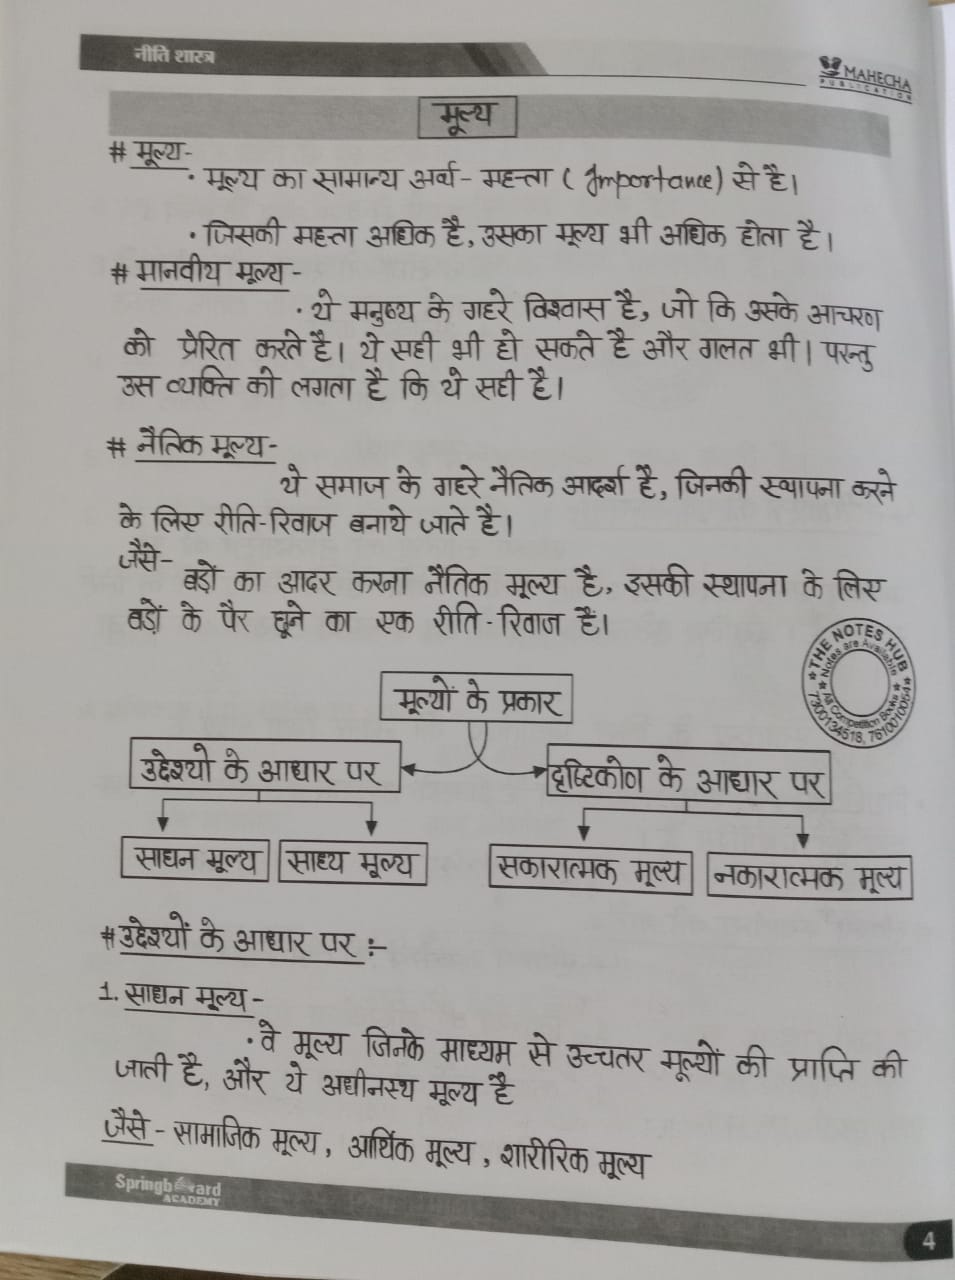 नीति शास्त्र
MAHECHA
PUBLICATION
मूल्य
# मूल्य-
• मूल्य का सामान्य अर्थ - महत्ता ( Importance) से है।
• जिसकी महत्ता अधिक है, उसका मूल्य भी अधिक होता है।
# मानवीय मूल्य-
• ये मनुष्य के गहरे विश्वास है, जो कि उसके आचरण
को प्रेरित करते है। ये सही भी हो सकते है और गलत भी। परन्तु
उस व्यक्ति को लगता है कि ये सही है।
# नैतिक मूल्य-
ये समाज के गहरे नैतिक आदर्श है, जिनकी स्थापना करने
के लिए रीति-रिवाज बनाये जाते है।
जैसे- बड़ों का आदर करना नैतिक मूल्य है, इसकी स्थापना के लिए
बड़ों के पैर छूने का एक रीति-रिवाज हैं।
THE NOTES HUB
Notes are Available
All Competition Books
7300134518, 7610010054
मूल्यों के प्रकार
उद्देश्यो के आधार पर
दृष्टिकोण के आधार पर
साधन मूल्य
साध्य मूल्य
सकारात्मक मूल्य
नकारात्मक मूल्य
# उद्देश्यों के आधार पर :-
1. साधन मूल्य-
• वे मूल्य जिनके माध्यम से उच्चतर मूल्यों की प्राप्ति की
जाती है, और ये अधीनस्थ मूल्य है
जैसे - सामाजिक मूल्य, आर्थिक मूल्य, शारीरिक मूल्य
Springboard
ACADEMY
4